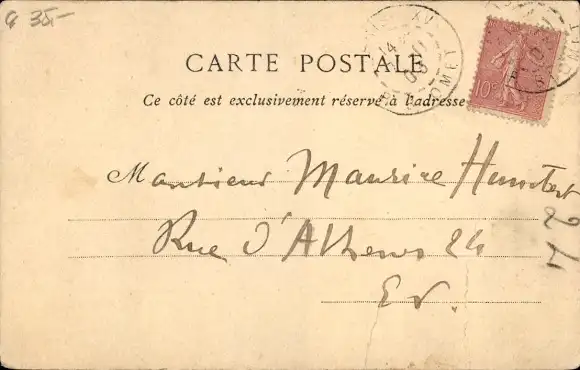 G 35.-
CARTE POSTALE
Ce côté est exclusivement réservé à l'adresse
10c
Monsieur Maurice
Rue d'Athènes 24
E. V.
24